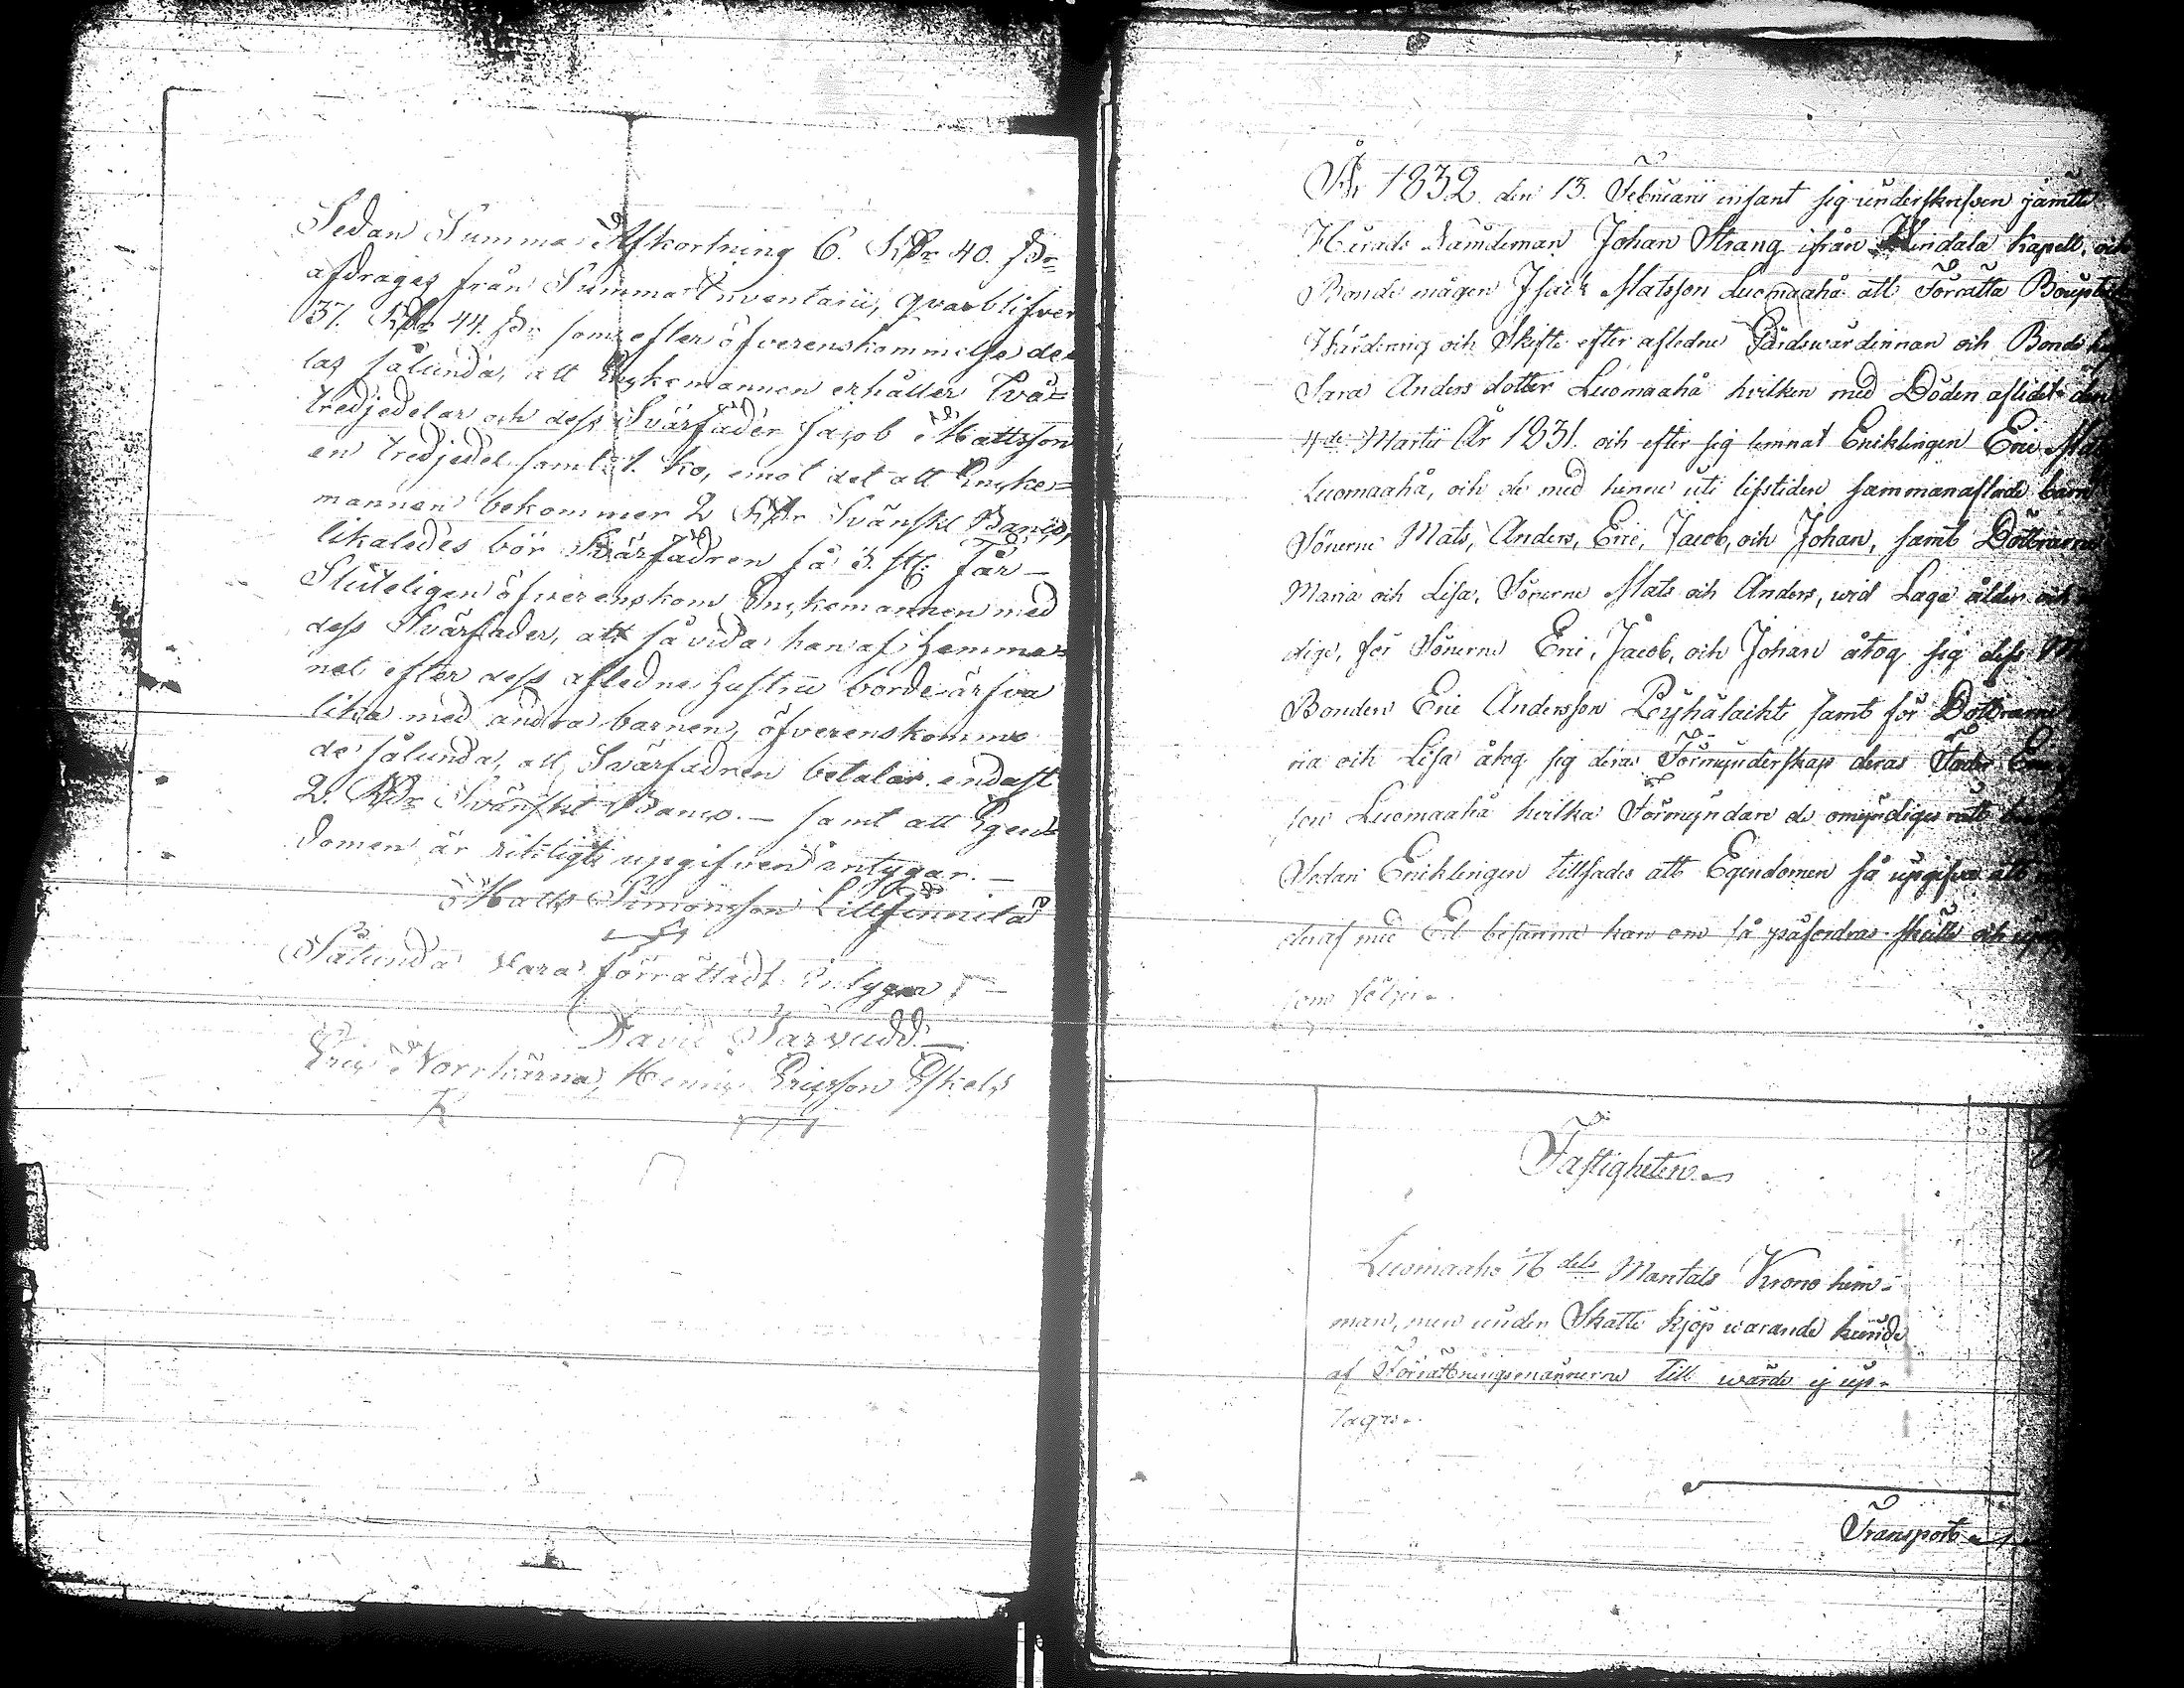 Sedan Summa Afkortning 6. RDr 40. s:r
afdrages från Summa Inventarii, qvarblifver
37. RDr 44. s:r som efter öfverenskommelse de-
las sålunda, att Enkemannen erhåller två-
tredjedelar och dess Svärfader Jacob Mattsson
en tredjedel samt 1. ko, emot det att Enke-
mannen bekommer 2 RDr Svänskt Banco,
likaledes bör Svärfadren få 3. st: Får –
Sluteligen öfverenskom Enkemannen med
dess Svärfader, att så vida han af Hemma-
net efter dess afledne Hustru borde ärfva
lika med andra barnen, öfverenskomme
de sålunda, att Svärfadren betalar endast
2. RDr Svänskt Banco. – samt att Egen-
domen är riktigt upgifven intygar. –
Matts Simonsson Lillsinnilä
Sålunda vara förrättadt intyga
David Jarvudd –
Eric Norrkärna, Henric Ericsson Eskels
År 1832 den 13. Februarii infant sig underskrefven jämte
Härads Nämdeman Johan Strang ifrån Windala Kapell, och
Bonde mågen Isack Matsson Luomaaho att Förrätta Boupt
Värdering och Skifte efter afledne Gärdswärdinnan och Bonde
Sara Anders dotter Luomaaho hvilken med Döden aflidet den
4de Martii År 1831. och efter sig lemnat Encklingen Eric
Luomaaho, och de med henne uti lifstiden sammanaflade barn
Sönerne Mats, Anders, Eric, Jacob, och Johan, samt Döttrarne
Maria och Lisa, Sönerne Mats och Anders, wid Laga ålder och
dige, för Sönerne Eric, Jacob, och Johan åtog sig dess
Bonden Eric Andersson Pyhälachti samt för Döttrarne
ria och Lisa åtog sig deras Förmynderskap deras Fader
son Luomaaho hvilka Förmyndare de omyndiges rätt
Sedan Encklingen tillsades att Egendomen så upgifva att
deraf med Ed besanna kan om så påfordras skulle och
som följer.
Fastigheten
Luomaaho 1/6 dels Mantals Krono hem-
man, men under Skatte kjöp warande kunde
af Förrättningsmännerne till wärde ej up-
tagas.
Transport